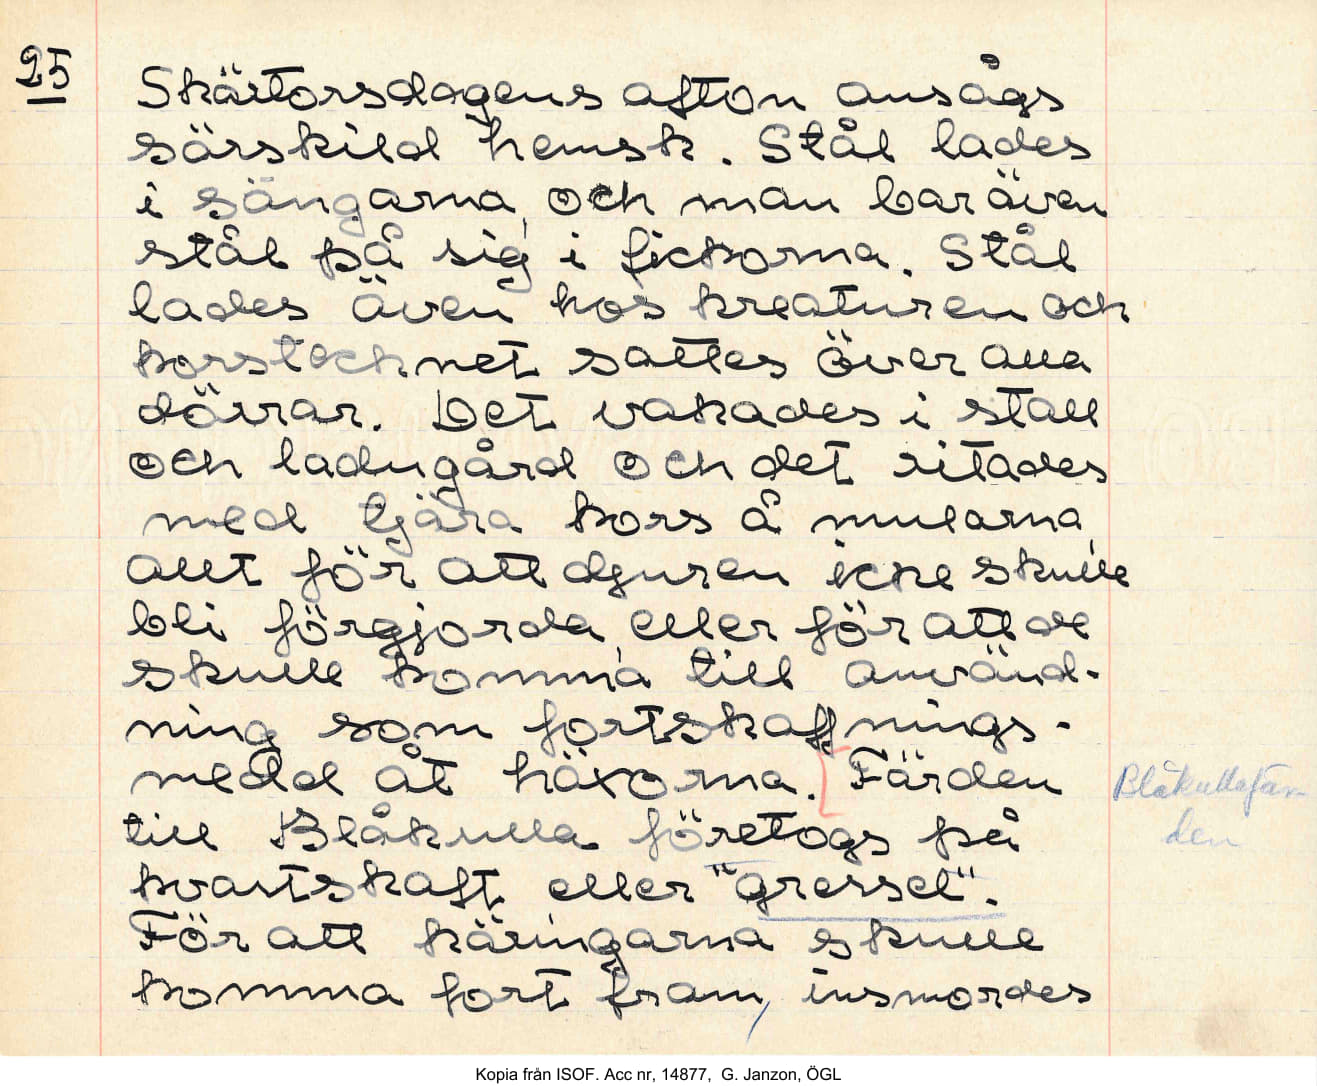 25
Skärtorsdagens afton ansågs
särskild hemsk. Stål lades
i sängarna, och man bar även
stål på sig i fickorna. Stål
lades även hos kreaturen och
korstecknet sattes över alla
dörrar. Det vakades i stall
och ladugård och det ritades
med tjära kors å mularna,
allt för att djuren icke skulle
bli förgjorda, eller för att de
skulle komma till använd-
ning som fortskaffnings-
medel åt häxorna. Färden
till Blåkulla företogs på
kvastskaft eller "gressel".
För att käringarna skulle
komma fort fram, insmordes
Blåkullafär-
den
Kopia från ISOF. Acc nr, 14877, G. Janzon, ÖGL